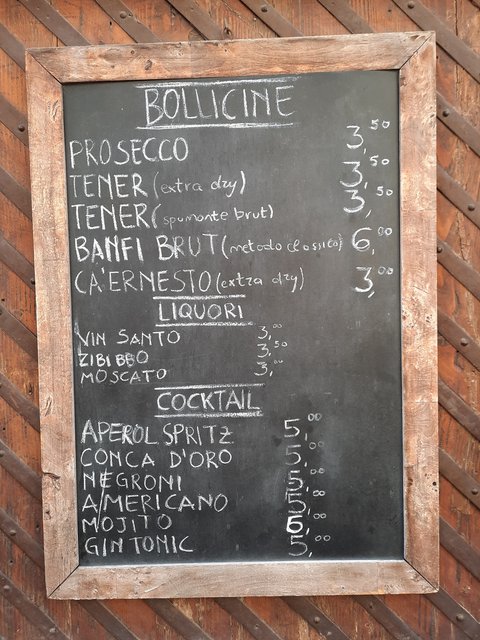 BOLLICINE
PROSECCO 3,50
TENER (extra dry) 3,50
TENER (spumante brut) 3,50
BANFI BRUT (metodo classico) 6,00
CA'ERNESTO (extra dry) 3,00
LIQUORI
VIN SANTO 3,00
ZIBIBBO 3,50
MOSCATO 3,00
COCKTAIL
APEROL SPRITZ 5,00
CONCA D'ORO 5,00
NEGRONI 5,00
AMERICANO 5,00
MOJITO 6,00
GIN TONIC 5,00